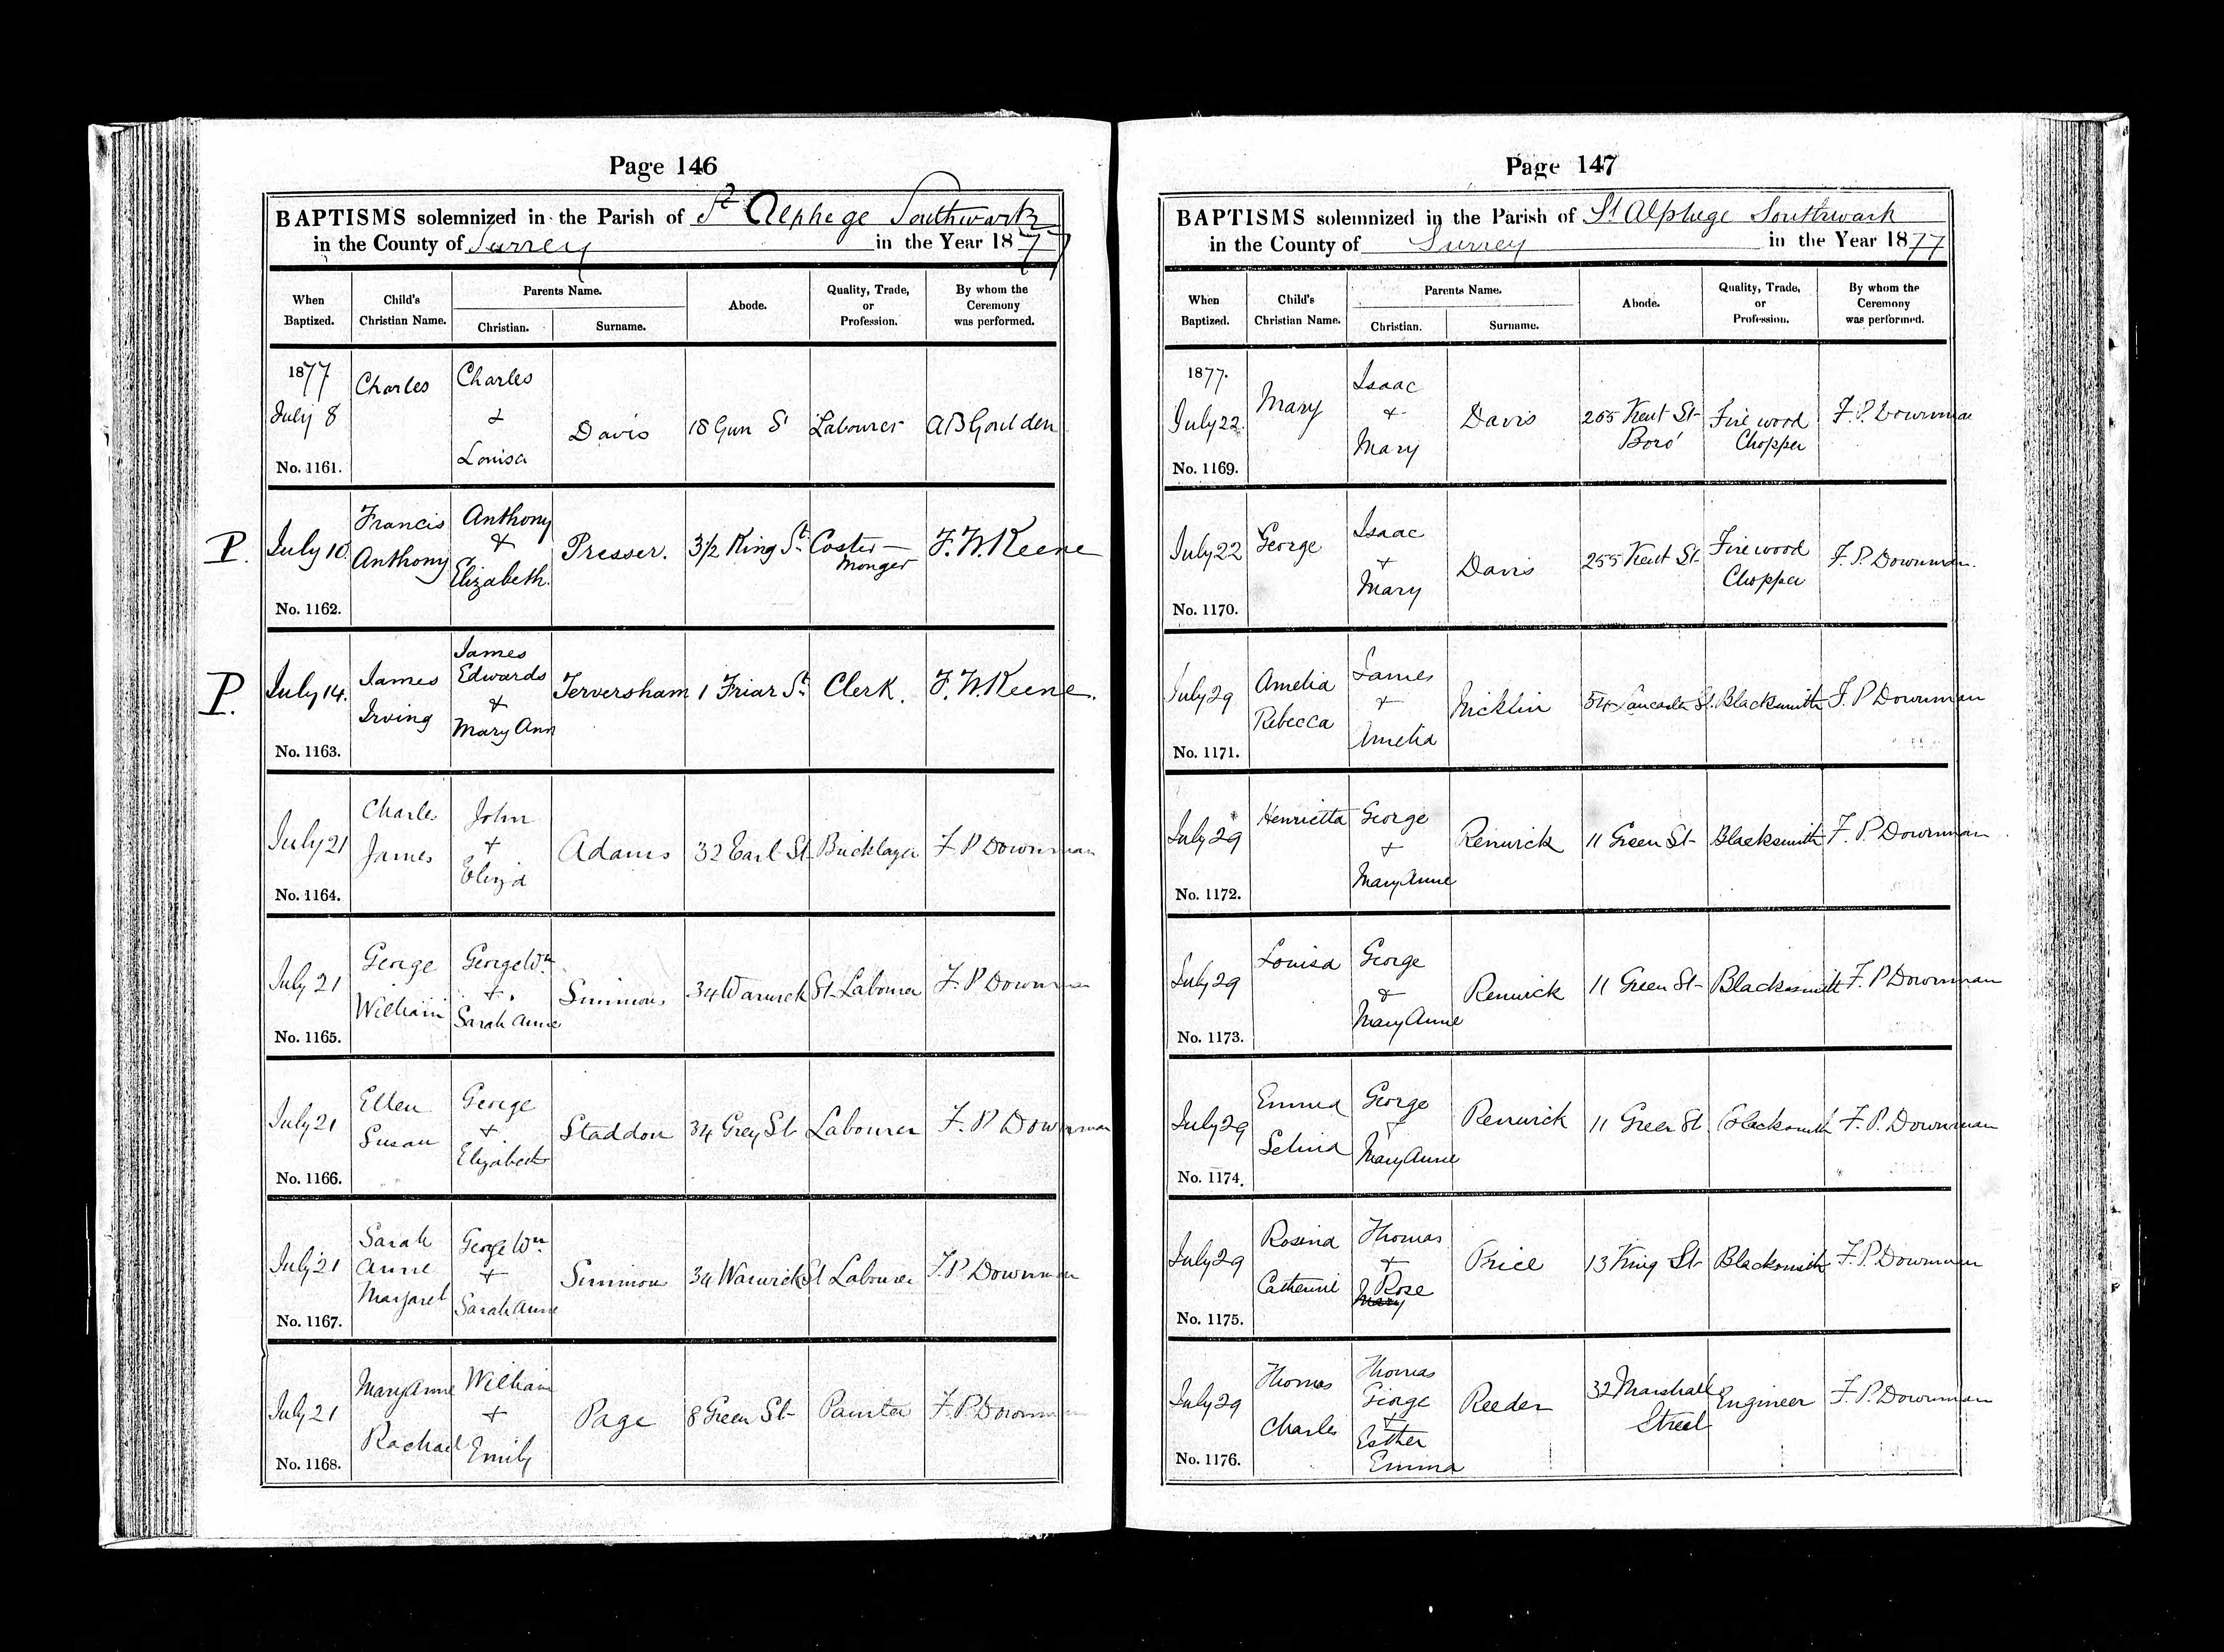 Page 146
BAPTISMS solemnized in the Parish of St Alphege Southwark
in the County of Surrey in the Year 1877
When Baptized.
Child's Christian Name.
Parents Name.
Christian.
Surname.
Abode.
Quality, Trade, or Profession.
By whom the Ceremony was performed.
1877 July 8 No. 1161. Charles Charles & Louisa Davis 18 Gun St Labourer A B Goulden
P. July 10. No. 1162. Francis Anthony Anthony & Elizabeth. Presser. 3/2 King St. Coster-monger F. W. Keene
P. July 14. No. 1163. James Irving James Edwards & Mary Ann Terversham 1 Friar St. Clerk. F. W. Keene.
July 21 No. 1164. Charles James John + Eliza Adams 32 Earl St Bricklayer F. P Downman
July 21 No. 1165. George William George Wm. + Sarah Anne Simmons 34 Warwick St Labourer F. P Downman
July 21 No. 1166. Ellen Susan George + Elizabeth Staddon 34 Grey St Labourer F. P Downman
July 21 No. 1167. Sarah Anne Margaret George Wm. + Sarah Anne Simmons 34 Warwick St Labourer F. P. Downman
July 21 No. 1168. Mary Anne Rachael William + Emily Page 8 Green St Painter F. P. Downman
Page 147
BAPTISMS solemnized in the Parish of St Alphege Southwark
in the County of Surrey in the Year 1877
When Baptized.
Child's Christian Name.
Parents Name.
Christian.
Surname.
Abode.
Quality, Trade, or Profession.
By whom the Ceremony was performed.
1877. July 22. No. 1169. Mary Isaac + Mary Davis 255 Kent St Boro' Fire wood Chopper F. P. Downman
July 22 No. 1170. George Isaac + Mary Davis 255 Kent St Fire wood Chopper F. P. Downman.
July 29 No. 1171. Amelia Rebecca James + Amelia Micklin 54 Lancaster St. Blacksmith F. P Downman
July 29 No. 1172. Henrietta George + Mary Anne Renwick 11 Green St Blacksmith F. P. Downman
July 29 No. 1173. Louisa George & Mary Anne Renwick 11 Green St Blacksmith F. P Downman
July 29 No. 1174. Emma Selina George + Mary Anne Renwick 11 Green St Blacksmith F. P. Downman
July 29 No. 1175. Rosina Catherine Thomas + Rose Mary Price 13 King St Blacksmith F. P. Downman
July 29 No. 1176. Thomas Charles Thomas George + Esther Emma Reeder 32 Marshall Street Engineer F. P. Downman